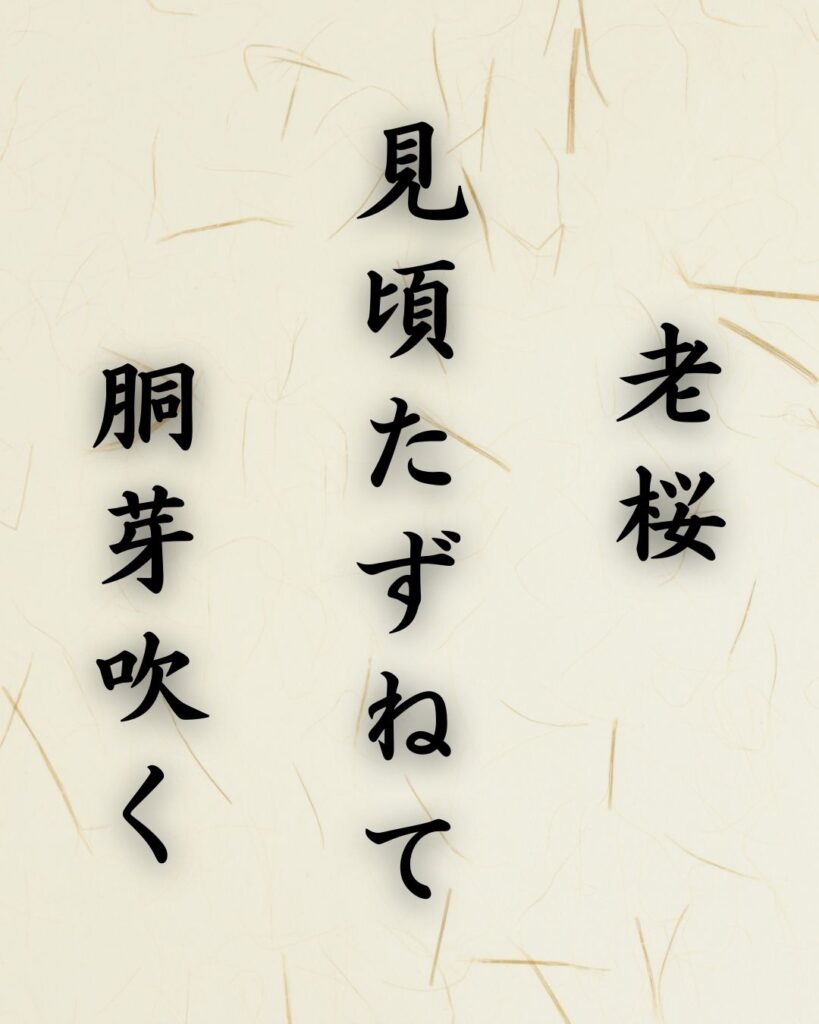 老桜
見頃たずねて
胴芽吹く